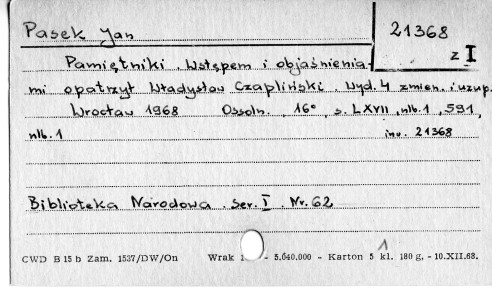 Pasek Jan
21368
z I
Pamiętniki. Wstępem i objaśnienia-
mi opatrzył Władysław Czapliński. Wyd. 4 zmien. i uzup.
Wrocław 1968 Ossoln. 16° s. LXVII, nlb. 1, 591,
nlb. 1 inw. 21368
Biblioteka Narodowa. Ser. I. Nr. 62
CWD B 15 b Zam. 1537/DW/On Wrak - 5.640.000 - Karton 5 kl. 180 g, - 10.XII.68.
1